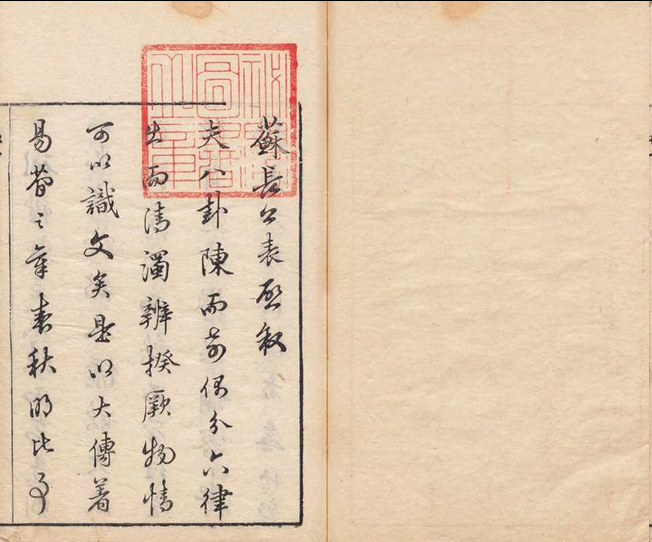 蘇長公表啓叙
夫八卦陳而奇偶分六律
出而清濁辨揆厥物情
可以識文矣是以大傳著
易普之章春秋明比事